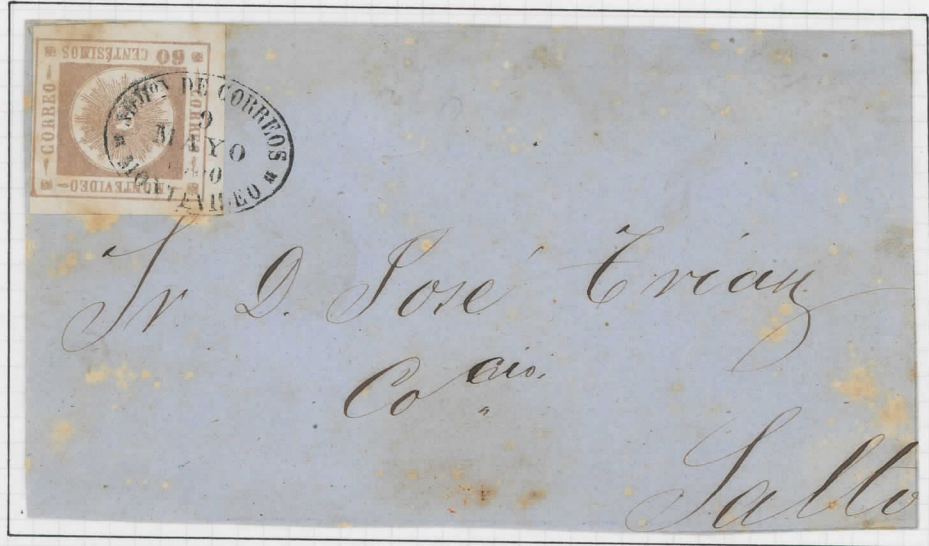 60 CENTÉSIMOS
CORREO
CORREO
MONTEVIDEO
ADMON DE CORREOS
9
MAYO
MONTEVIDEO
Sr. D. José Trian
Salto